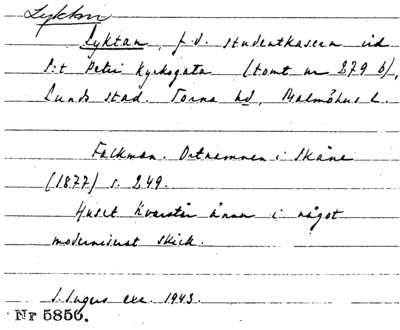 Lyktan
Lyktan, f.d. studentkasern vid
S:t Petri Kyrkogata (tomt nr 279 b),
Lunds stad. Torna hd, Malmöhus l.
Falkman. Ortnamnen i Skåne
(1877) s. 249.
Huset kvarstår ännu i något
moderniserat skick.
exc. 1943.
Nr 5856.